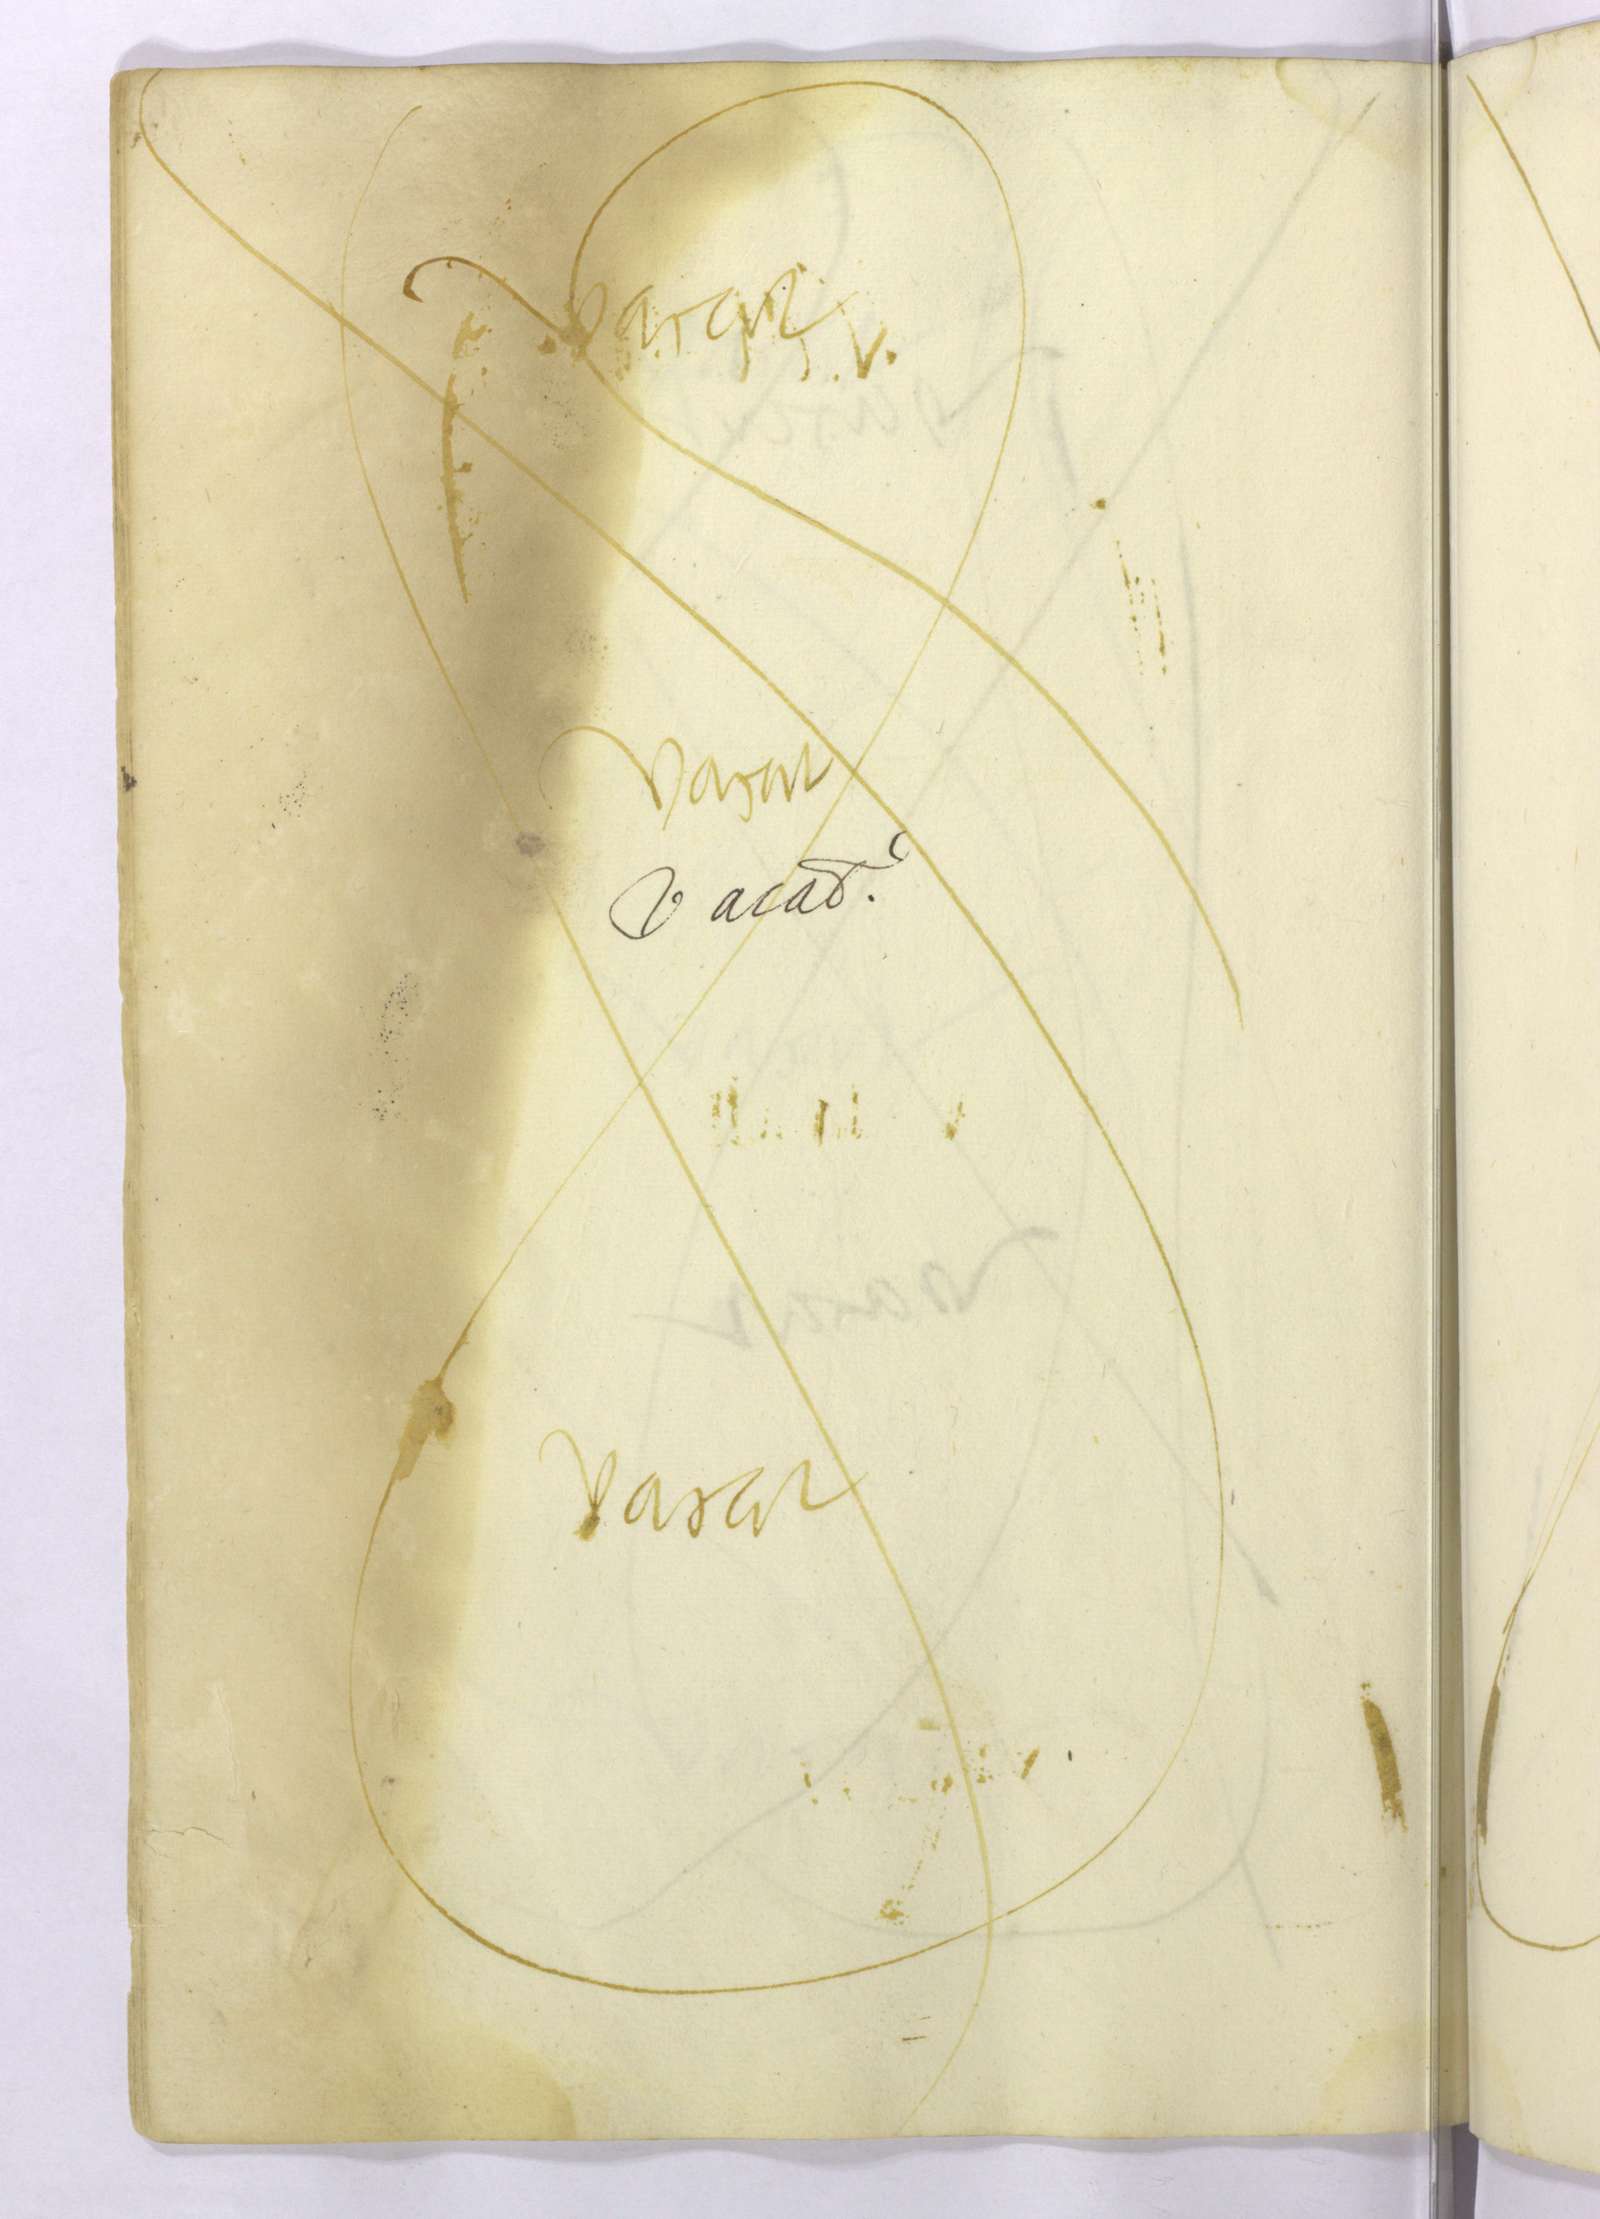 vacat
vacat
vacat.
vacat